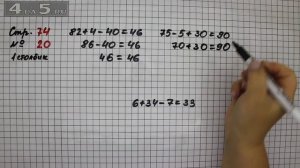 Стр. 74
№ 20
1 столбик
82+4-40=46
86-40=46
46=46
75-5+30=90
70+30=90
6+34-7=33